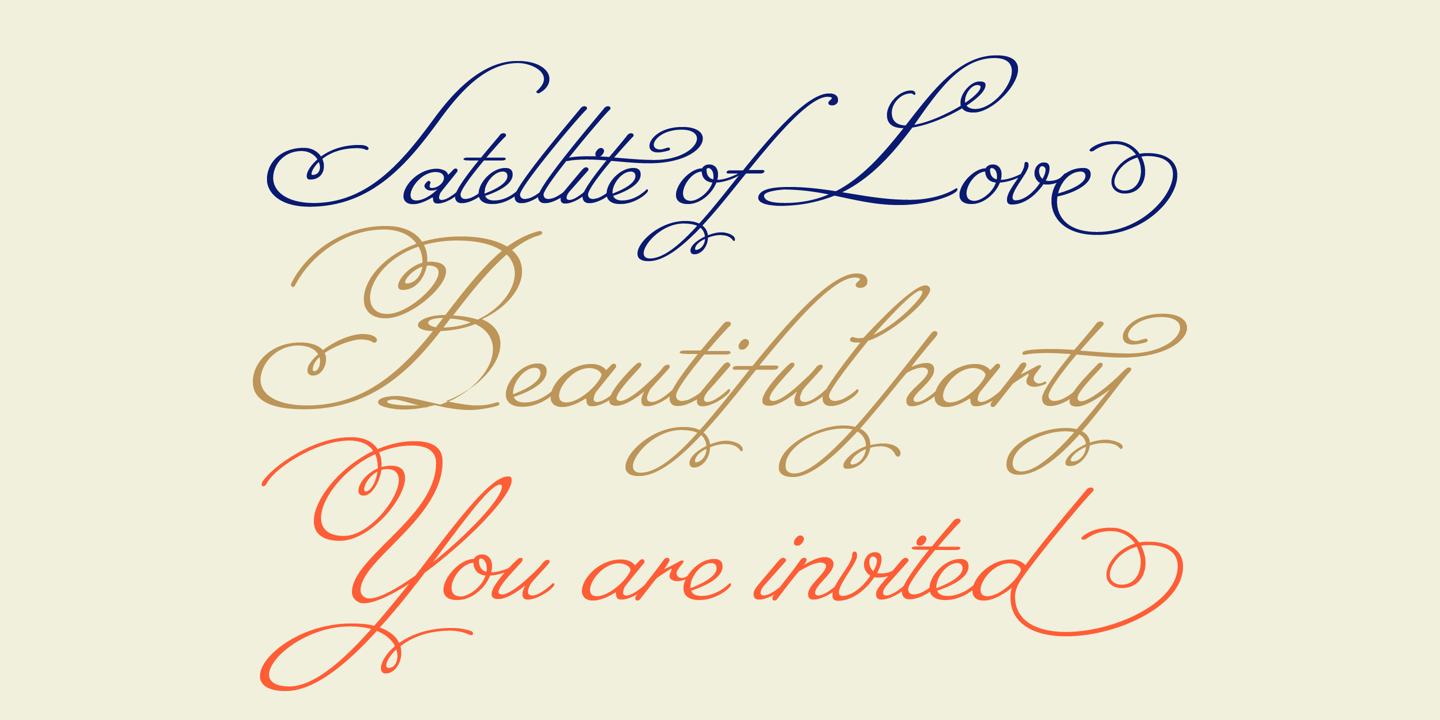 Satellite of Love
Beautiful party
You are invited